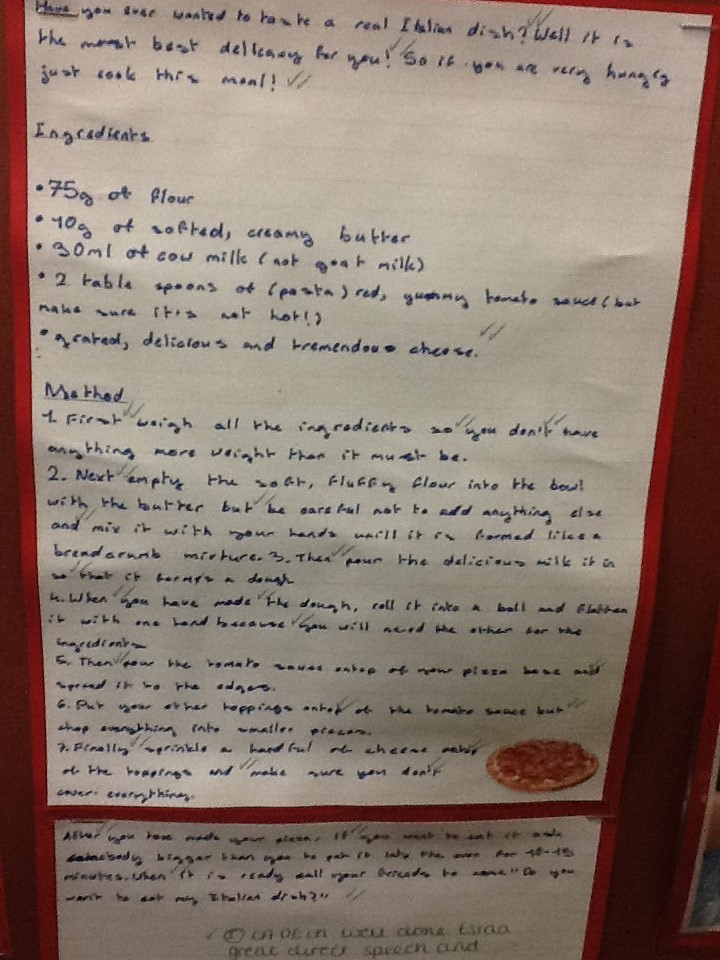 Have you ever wanted to taste a real Italian dish? Well it is
the most best delicacy for you! So if you are very hungry
just cook this meal!
Ingredients
• 75g of flour
• 40g of softed, creamy butter
• 30ml of cow milk (not goat milk)
• 2 table spoons of (pasta) red, yummy tomato sauce (but
make sure it's not hot!)
• grated, delicious and tremendous cheese.
Method
1. First weigh all the ingredients so you don't have
anything more weight than it must be.
2. Next empty the soft, fluffy flour into the bowl
with the butter but be careful not to add anything else
and mix it with your hands it is formed like a
breadcrumb mixture. 3. Then pour the delicious milk it in
so that it forms a dough
4. When you have made the dough, roll it into a ball and flatten
it with one hand because you will need the other for the
ingredients.
5. Then pour the tomato sauce ontop of your pizza base and
spread it to the edges.
6. Put your other toppings ontop of the tomato sauce but
chop everything into smaller pieces.
7. Finally sprinkle a handful of cheese ontop
of the toppings and make sure you don't
cover everything.
After you have made your pizza, if you want to eat it ask
somebody bigger than you to put it into the oven for 10-15
minutes. When it is ready call your friends to come "Do you
want to eat my Italian dish?"
well done Esraa
great direct speech and